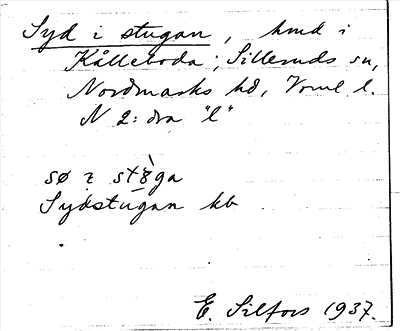 Syd i stugan, hmd i
Kålleboda, Silleruds sn,
Nordmarks hd, Vrml l.
N 2: dra "l"
sø i ståga
Sydstugan kb
E. Silfors 1937.